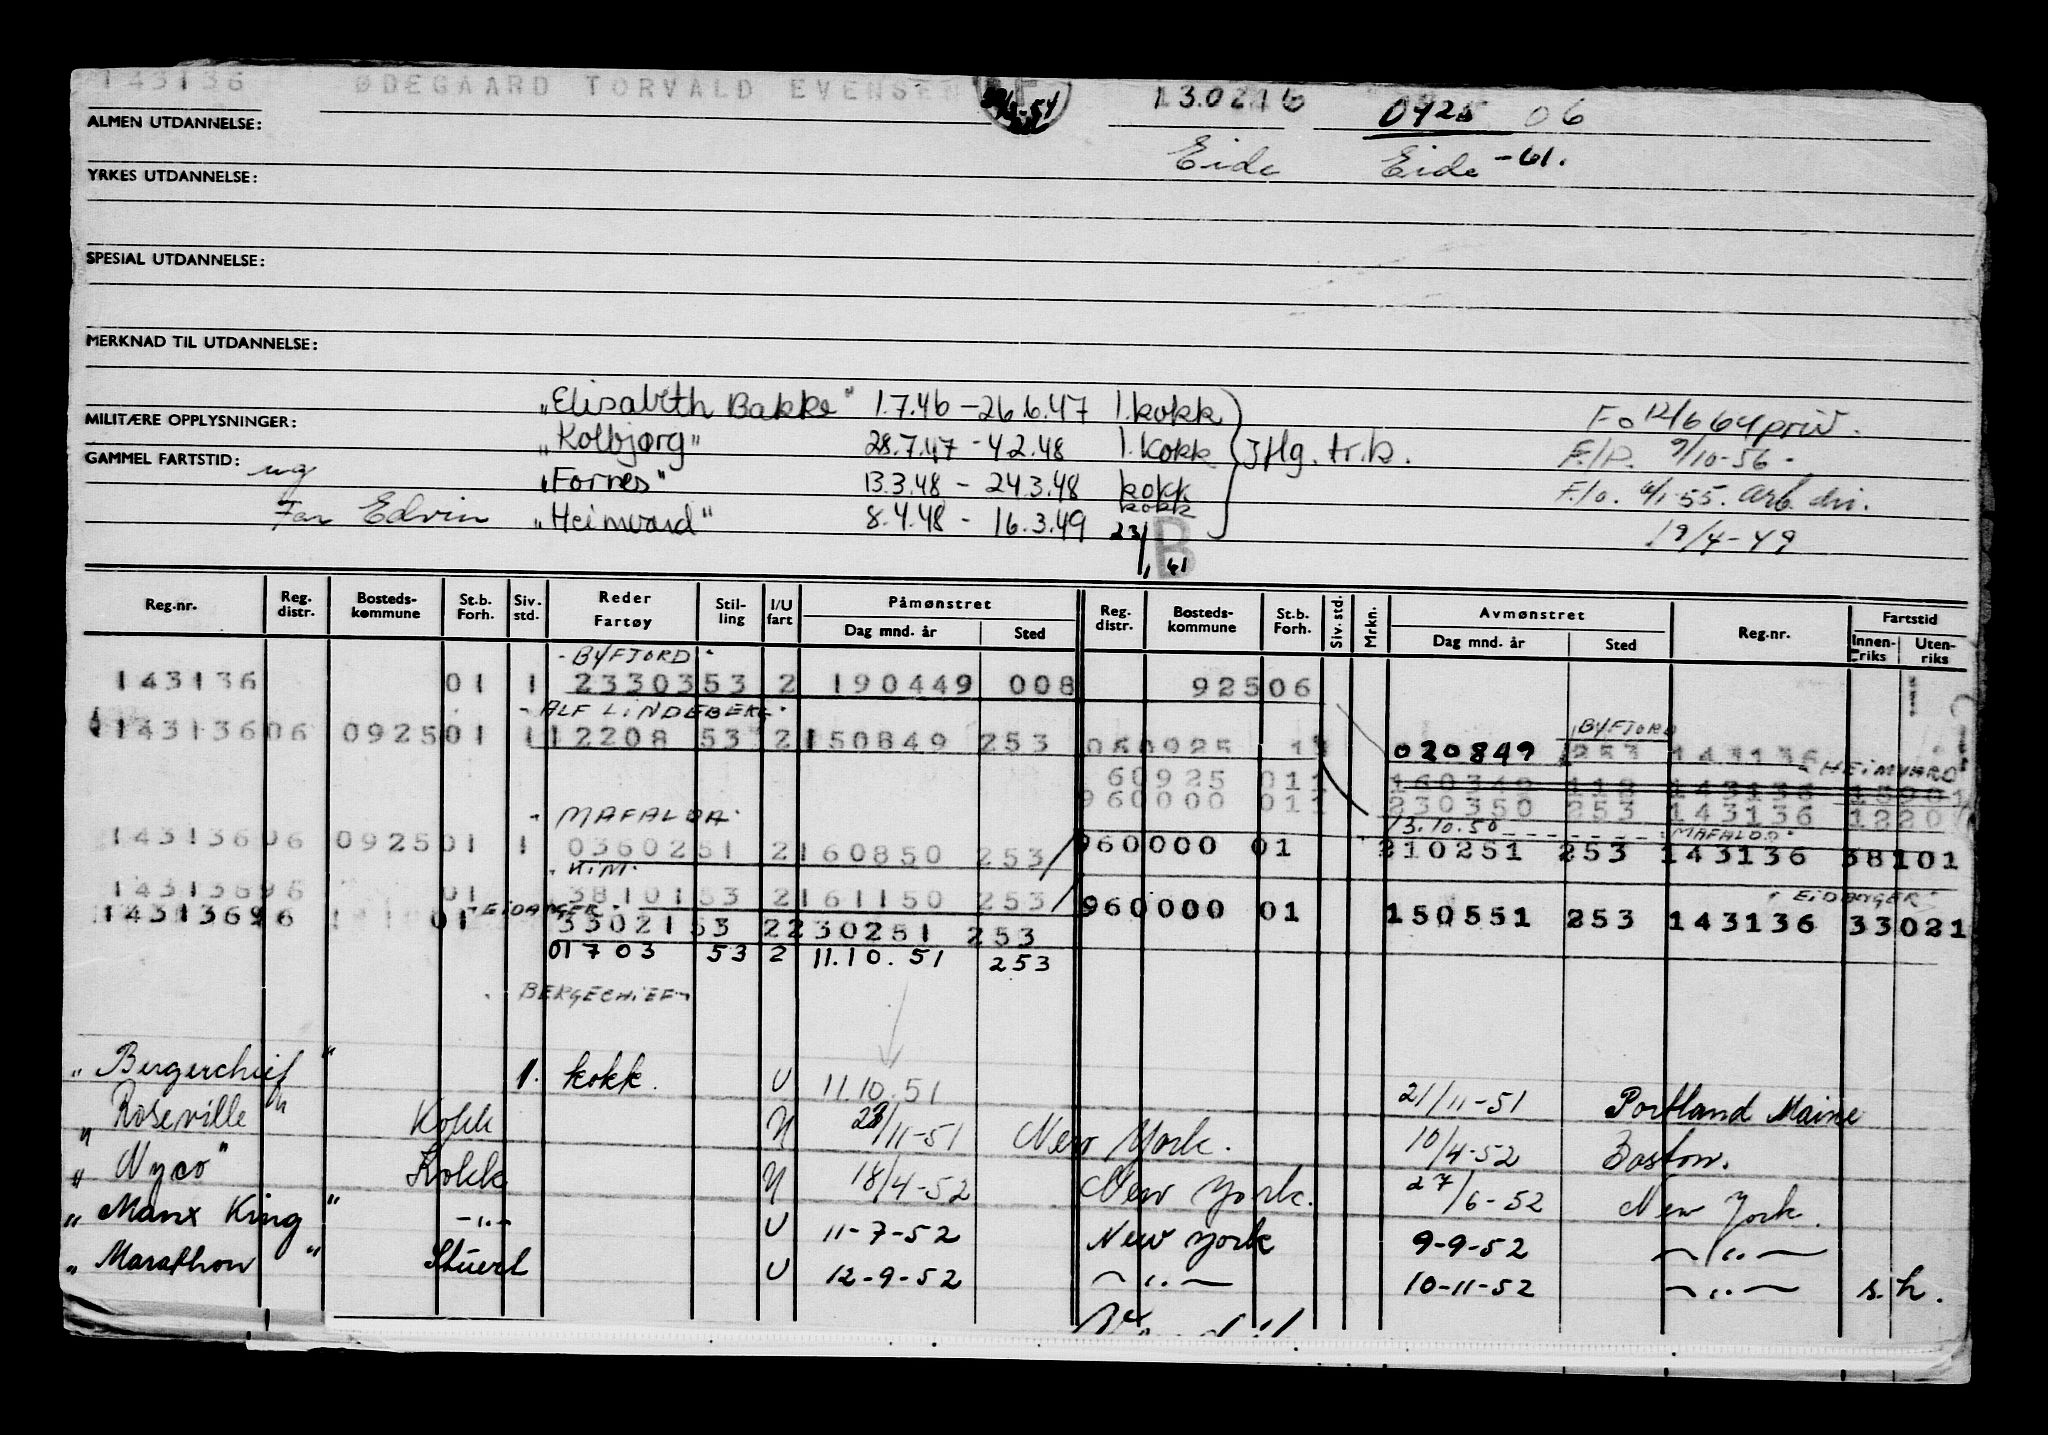 143136 ØDEGAARD TORVALD EVENSEN 0925 06
ALMEN UTDANNELSE:
Eide Eide -61.
YRKES UTDANNELSE:
SPESIAL UTDANNELSE:
MERKNAD TIL UTDANNELSE:
"Elisabeth Bakke" 1.7.46 - 26.6.47 1. kokk
MILITÆRE OPPLYSNINGER: Fo 12/6 64 priv.
"Kolbjørg" 28.7.47 - 4.2.48 1. kokk
GAMMEL FARTSTID: ug F./P. 9/10-56 -
"Fornes" 13.3.48 - 24.3.48 kokk
Far Edvin "Heimvard" 8.4.48 - 16.3.49 kokk
19/4-49
23/1 61 B
Reg.nr. Reg. distr. Bosteds-kommune St.b. Forh. Siv. std. Reder Fartøy Stil-ling I/U fart Påmønstret Dag mnd. år Sted Reg. distr. Bosteds-kommune St.b. Forh. Siv. std. Mrkn. Avmønstret Dag mnd. år Sted Reg.nr. Fartstid Innen-riks Uten-riks
- BYFJORD -
143136 01 1 23303 53 2 190449 008 92506
- ALF LINDEBERG - BYFJORD
143136 06 0925 01 1 12208 53 2 150849 253 060925 020849 253 143136
HEIMVARD
60925 011 160349 118 143136
960000 011 230350 253 143136 1220
- MAFALDA - 13.10.50 - MAFALDA -
143136 06 0925 01 1 03602 51 2 160850 253 960000 01 210251 253 143136 38101
- K.M. - EIDANGER -
143136 96 01 38101 53 2 161150 253 960000 01 150551 253 143136 33021
- EIDANGER -
143136 96 01 33021 53 2 230251 253
01703 53 2 11.10.51 253
- BERGECHIEF -
"Bergerchief" 1. kokk. U 11.10.51 21/11-51 Portland Maine
"Roseville" Kokk U 23/11-51 New York. 10/4-52 Boston.
"Nyco" Kokk U 18/4-52 New York. 27/6-52 New York.
"Manx King" -"- U 11-7-52 New York 9-9-52 -"-
"Marathon" Stuert U 12-9-52 -"- 10-11-52 -"- s.h.